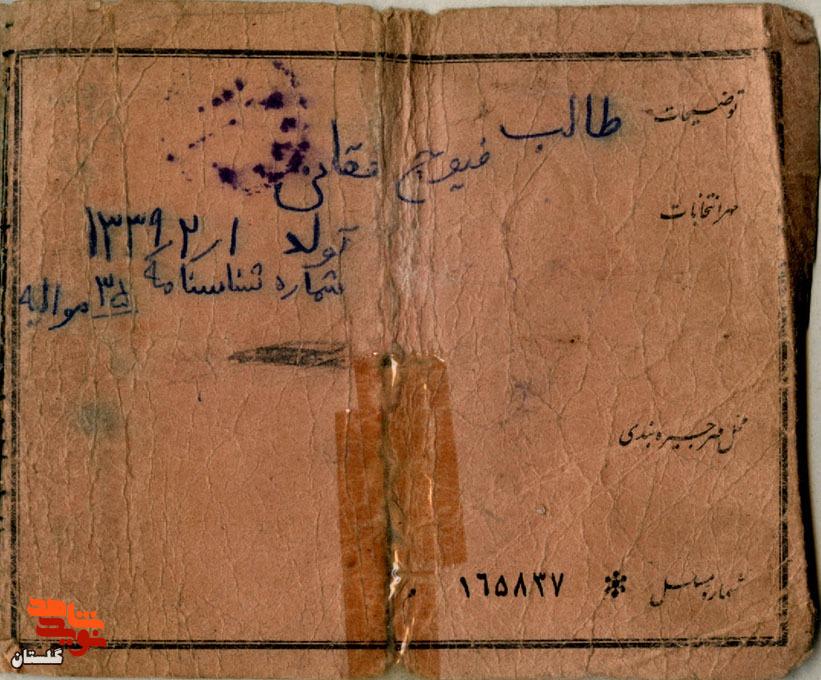 توضیحات
طالب فیوج مقانی
مهر انتخابات
تولد ۱ر۲ر۱۳۳۹
شماره شناسنامه ۳۵
محل مهر جیره بندی
شماره مسلسل ١٦٥٨٣٧ م
نوید شاهد
گلستان